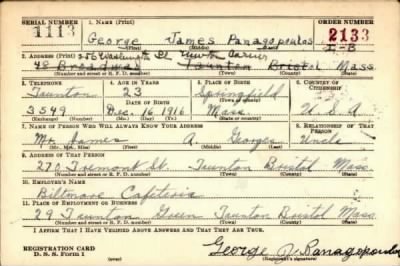 SERIAL NUMBER 1. NAME (Print) ORDER NUMBER
1113 George James Panagopoulos 2133
(First) (Middle) (Last) I-B
2. ADDRESS (Print) 256 Washington St
48 Broadway Taunton Bristol Mass
(Number and street or R. F. D. number) (Town) (County) (State)
3. TELEPHONE 4. AGE IN YEARS 5. PLACE OF BIRTH 6. COUNTRY OF CITIZENSHIP
Taunton 23 Springfield
DATE OF BIRTH (Town or county)
3549 Dec. 16 1916 Mass. U.S.A
(Exchange) (Number) (Mo.) (Day) (Yr.) (State or country)
7. NAME OF PERSON WHO WILL ALWAYS KNOW YOUR ADDRESS 8. RELATIONSHIP OF THAT PERSON
Mr. James A. Georges Uncle
(Mr., Mrs., Miss) (First) (Middle) (Last)
9. ADDRESS OF THAT PERSON
270 Tremont St. Taunton Bristol Mass.
(Number and street or R. F. D. number) (Town) (County) (State)
10. EMPLOYER'S NAME
Biltmore Cafeteria
11. PLACE OF EMPLOYMENT OR BUSINESS
29 Taunton Green Taunton Bristol Mass.
(Number and street or R. F. D. number) (Town) (County) (State)
I AFFIRM THAT I HAVE VERIFIED ABOVE ANSWERS AND THAT THEY ARE TRUE.
REGISTRATION CARD
D. S. S. Form 1 George J. Panagopoulos
(over) (Registrant's signature)